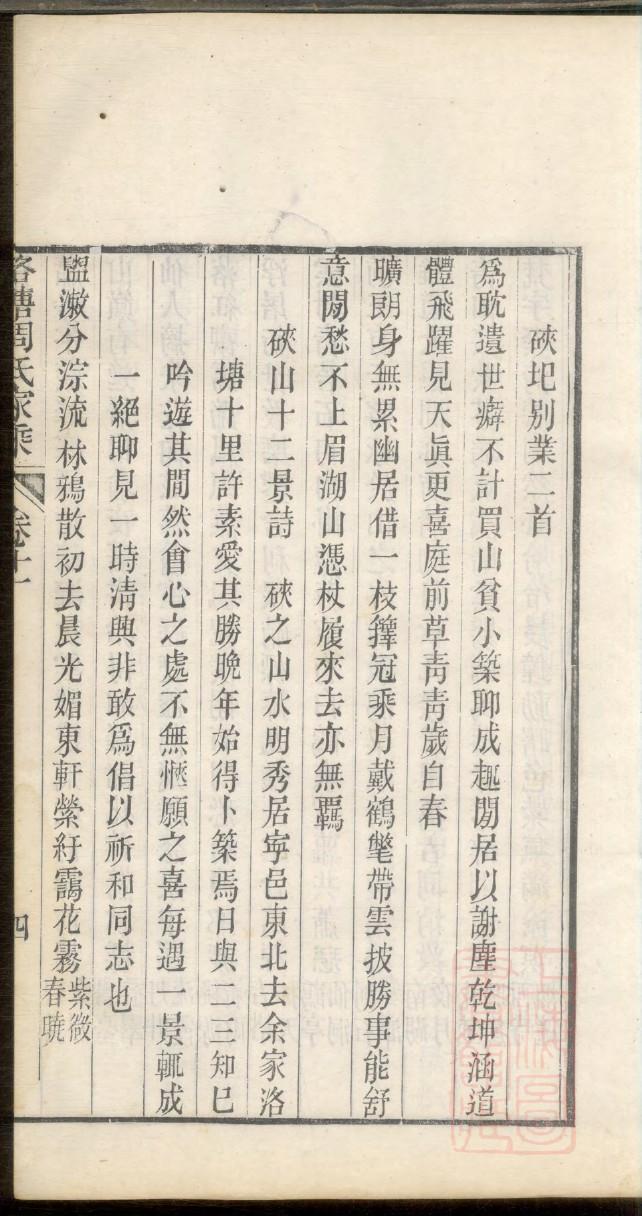 硤𡉏別業二首
爲耽遺世癖不計買山貧小築聊成趣閒居以謝塵乾坤涵道
體飛躍見天眞更喜庭前草靑靑歲自春
曠朗身無累幽居借一枝籜冠乘月戴鶴氅帶雲披勝事能舒
意閒愁不上眉湖山憑杖履來去亦無羈
硤山十二景詩 硤之山水明秀居寧邑東北去余家洛
塘十里許素愛其勝晚年始得卜築焉日與二三知已
吟遊其間然會心之處不無愜願之喜每遇一景輒成
一絕聊見一時淸興非敢爲倡以祈和同志也
盥漱分淙流林鴉散初去晨光媚東軒縈紆靄花霧 紫微春曉
洛塘周氏家乘 卷十一 四